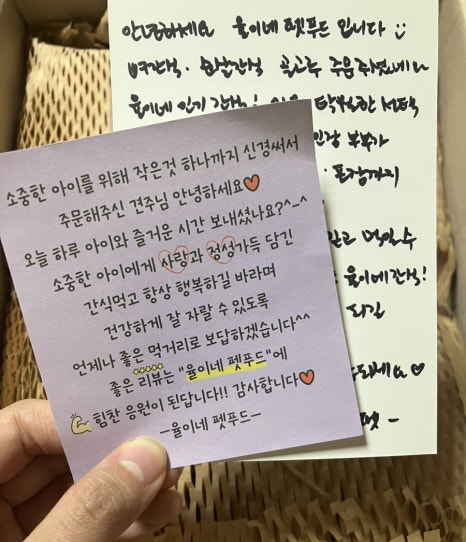 안녕하세요 율이네 펫푸드 입니다 :)
뼈간식· 보살간식 골고루 주문주셨네요~
율이네 인기 간식!
탁월한 선택
부부가
포장까지
율이네간식!
되길
되세요♡
소중한 아이를 위해 작은것 하나까지 신경써서
주문해주신 견주님 안녕하세요♥
오늘 하루 아이와 즐거운 시간 보내셨나요?^-^
소중한 아이에게 사랑과 정성가득 담긴
간식먹고 항상 행복하길 바라며
건강하게 잘 자랄 수 있도록
언제나 좋은 먹거리로 보답하겠습니다^^
좋은 리뷰는 "율이네 펫푸드"에
힘찬 응원이 된답니다!! 감사합니다♥
-율이네 펫푸드-